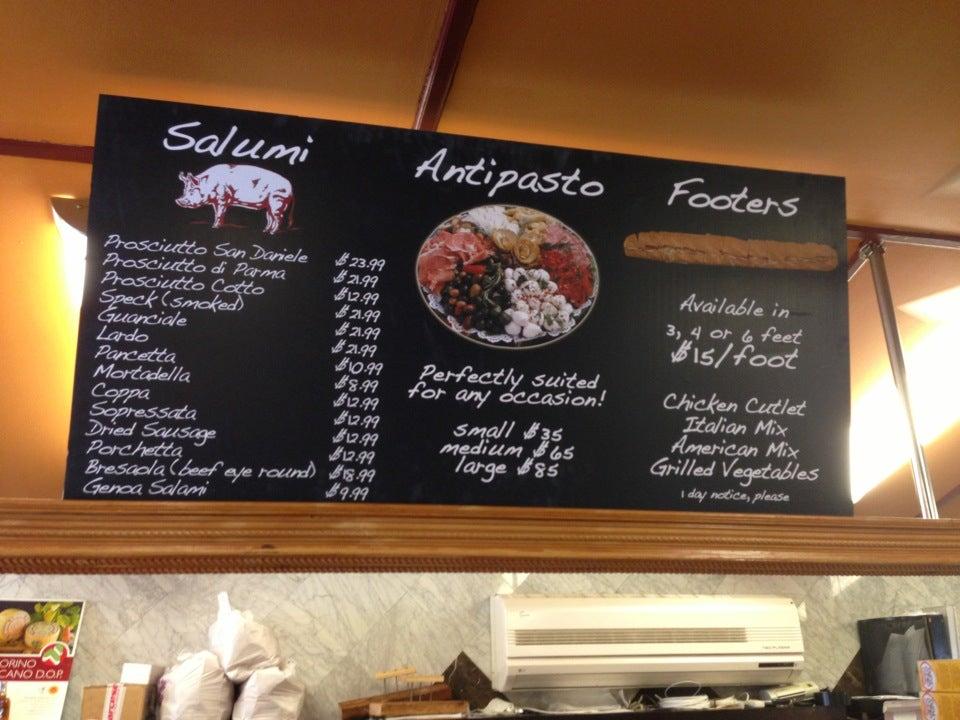 Salumi
Prosciutto San Daniele $23.99
Prosciutto di Parma $21.99
Prosciutto Cotto $12.99
Speck (smoked) $21.99
Guanciale $21.99
Lardo $21.99
Pancetta $10.99
Mortadella $8.99
Coppa $12.99
Sopressata $12.99
Dried Sausage $12.99
Porchetta $12.99
Bresaola (beef eye round) $18.99
Genoa Salami $9.99
Antipasto
Perfectly suited
for any occasion!
small $35
medium $65
large $85
Footers
Available in
3, 4 or 6 feet
$15/foot
Chicken Cutlet
Italian Mix
American Mix
Grilled Vegetables
1 day notice, please
ORINO
CANO D.O.P.